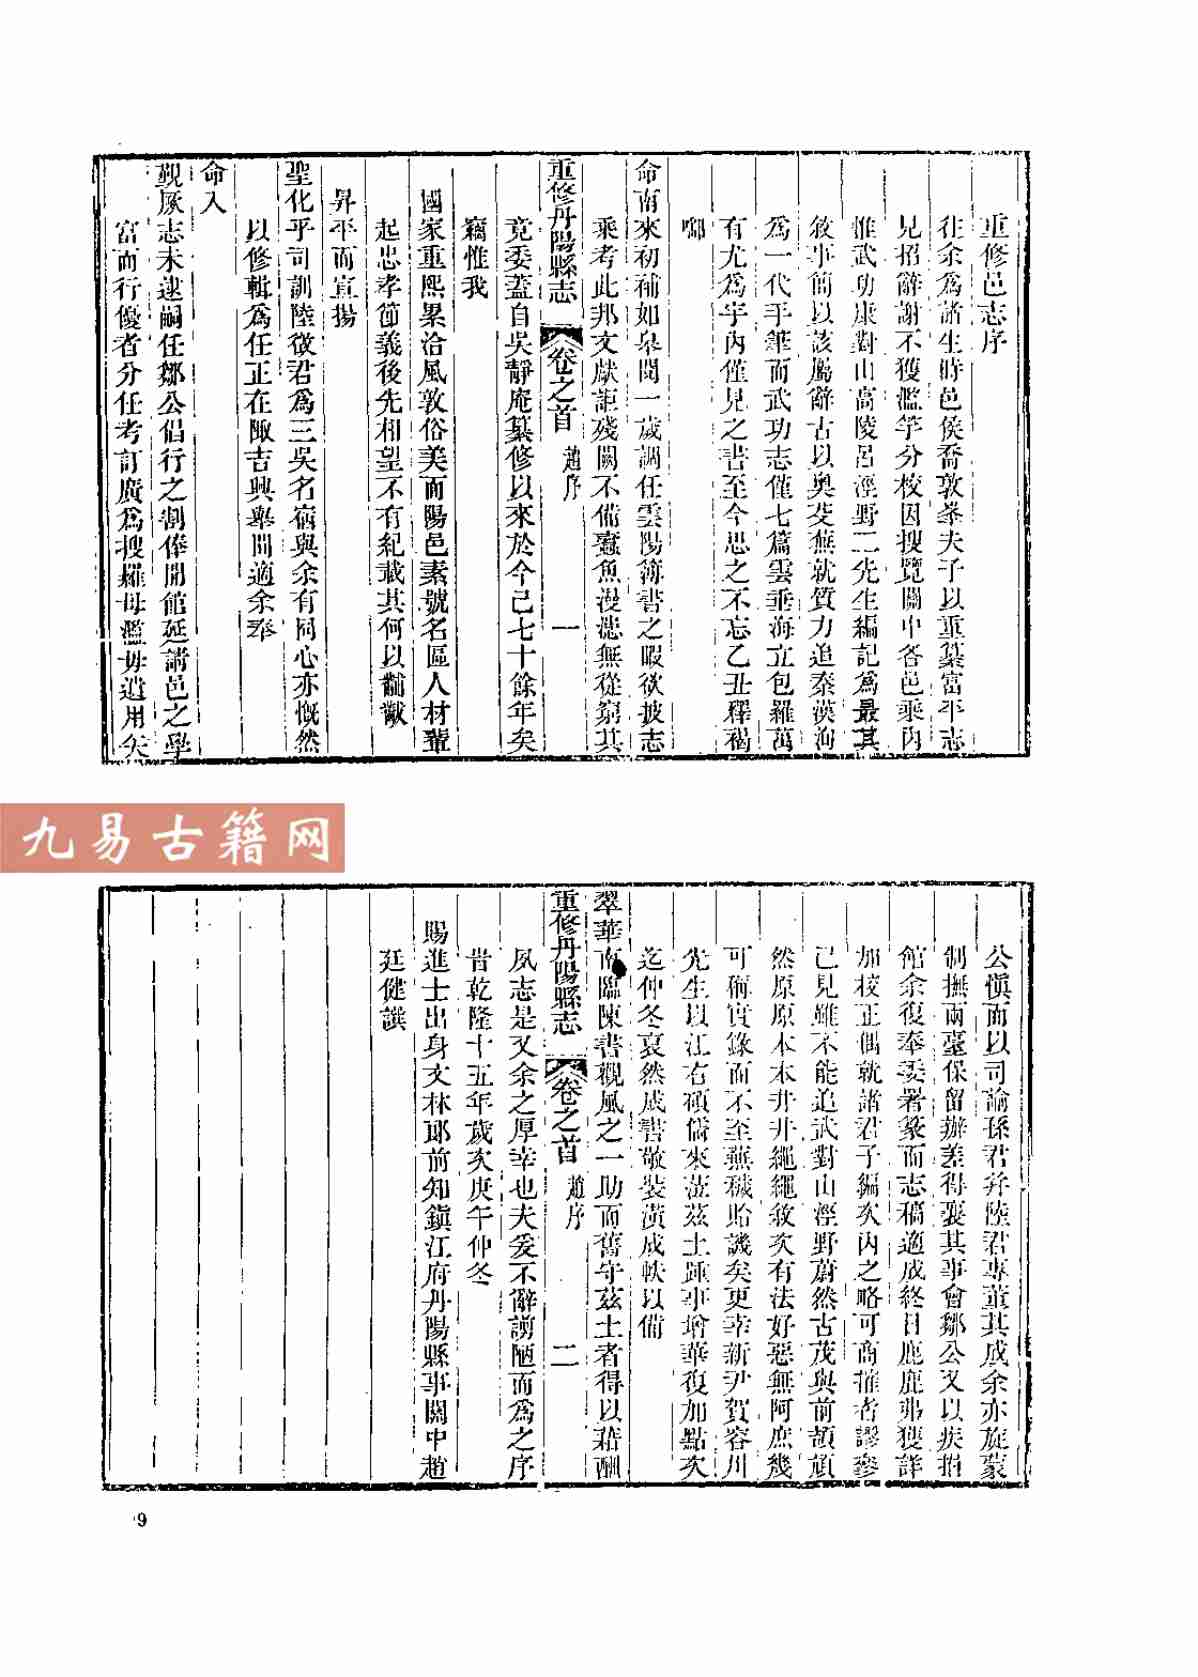 重修邑志序
往余爲諸生時邑侯喬敦峯夫子以重纂富平志
見招辭謝不獲濫竽分校因搜覽關中各邑乘內
惟武功康對山高陵呂涇野二先生編記爲最其
敘事簡以該屬辭古以奧芟蕪就質力追秦漢洵
爲一代手筆而武功志僅七篇雲垂海立包羅萬
有尤爲宇內僅見之書至今思之不忘乙丑釋褐
啣
命南來初補如臯閱一歲調任雲陽簿書之暇欲披志
乘考此邦文獻詎殘闕不備蠹魚漫漶無從窮其
竟委蓋自吳靜庵纂修以來於今己七十餘年矣
竊惟我
國家重熙累洽風敦俗美而陽邑素號名區人材輩
起忠孝節義後先相望不有紀載其何以黼黻
昇平而宣揚
聖化乎司訓陸徵君爲三吳名宿與余有同心亦慨然
以修輯爲任正在陬吉興舉間適余奉
命入
覲厥志未逮嗣任鄒公倡行之割俸開館延請邑之學
富而行優者分任考訂廣爲搜羅毋濫毋遺用矢
重修丹陽縣志 卷之首 趙序 一
公慎而以司諭孫君幷陸君專董其成余亦旋蒙
制撫兩臺保留辦差得襄其事會鄒公又以疾捐
館余復奉委署篆而志稿適成終日鹿鹿弗獲詳
加校正偶就諸君子編次內之略可商搉者謬參
己見雖不能追武對山涇野蔚然古茂與前頡頏
然原原本本井井繩繩敘次有法好惡無阿庶幾
可稱實錄而不至蕪穢貽譏矣更幸新尹賀容川
先生以江右碩儒來蒞茲土踵事增華復加點次
迄仲冬裒然成書敬裝潢成帙以備
翠華南臨陳書觀風之一助而舊守茲土者得以藉酬
夙志是又余之厚幸也夫爰不辭謭陋而爲之序
旹乾隆十五年歲次庚午仲冬
賜進士出身文林郎前知鎮江府丹陽縣事關中趙
廷健譔
重修丹陽縣志 卷之首 趙序 二
九易古籍网
9